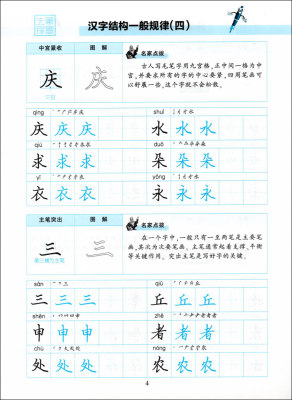 汉字结构一般规律(四)
中宫紧收 图解 名家点拨
庆 庆
古人写毛笔字用九宫格,正中间一格为中
宫,并要求所有的字的中心要紧,四周笔画可
以舒展一些,这个字就不会松散。
qìng shuǐ
庆 庆 庆 水 水 水
qiú duǒ
求 求 求 朵 朵 朵
yī yǒng
衣 衣 衣 永 永 永
主笔突出 图解 名家点拨
三 三
第三横为主笔
在一个字中,一般只有一至两笔是主要笔
画,其次为次要笔画。主笔通常起着支撑、平衡
等关键作用。突出主笔是写好字的关键。
sān qiū
三 三 三 丘 丘 丘
shēn zhě
申 申 申 者 者 者
chù nóng
处 处 处 农 农 农
4